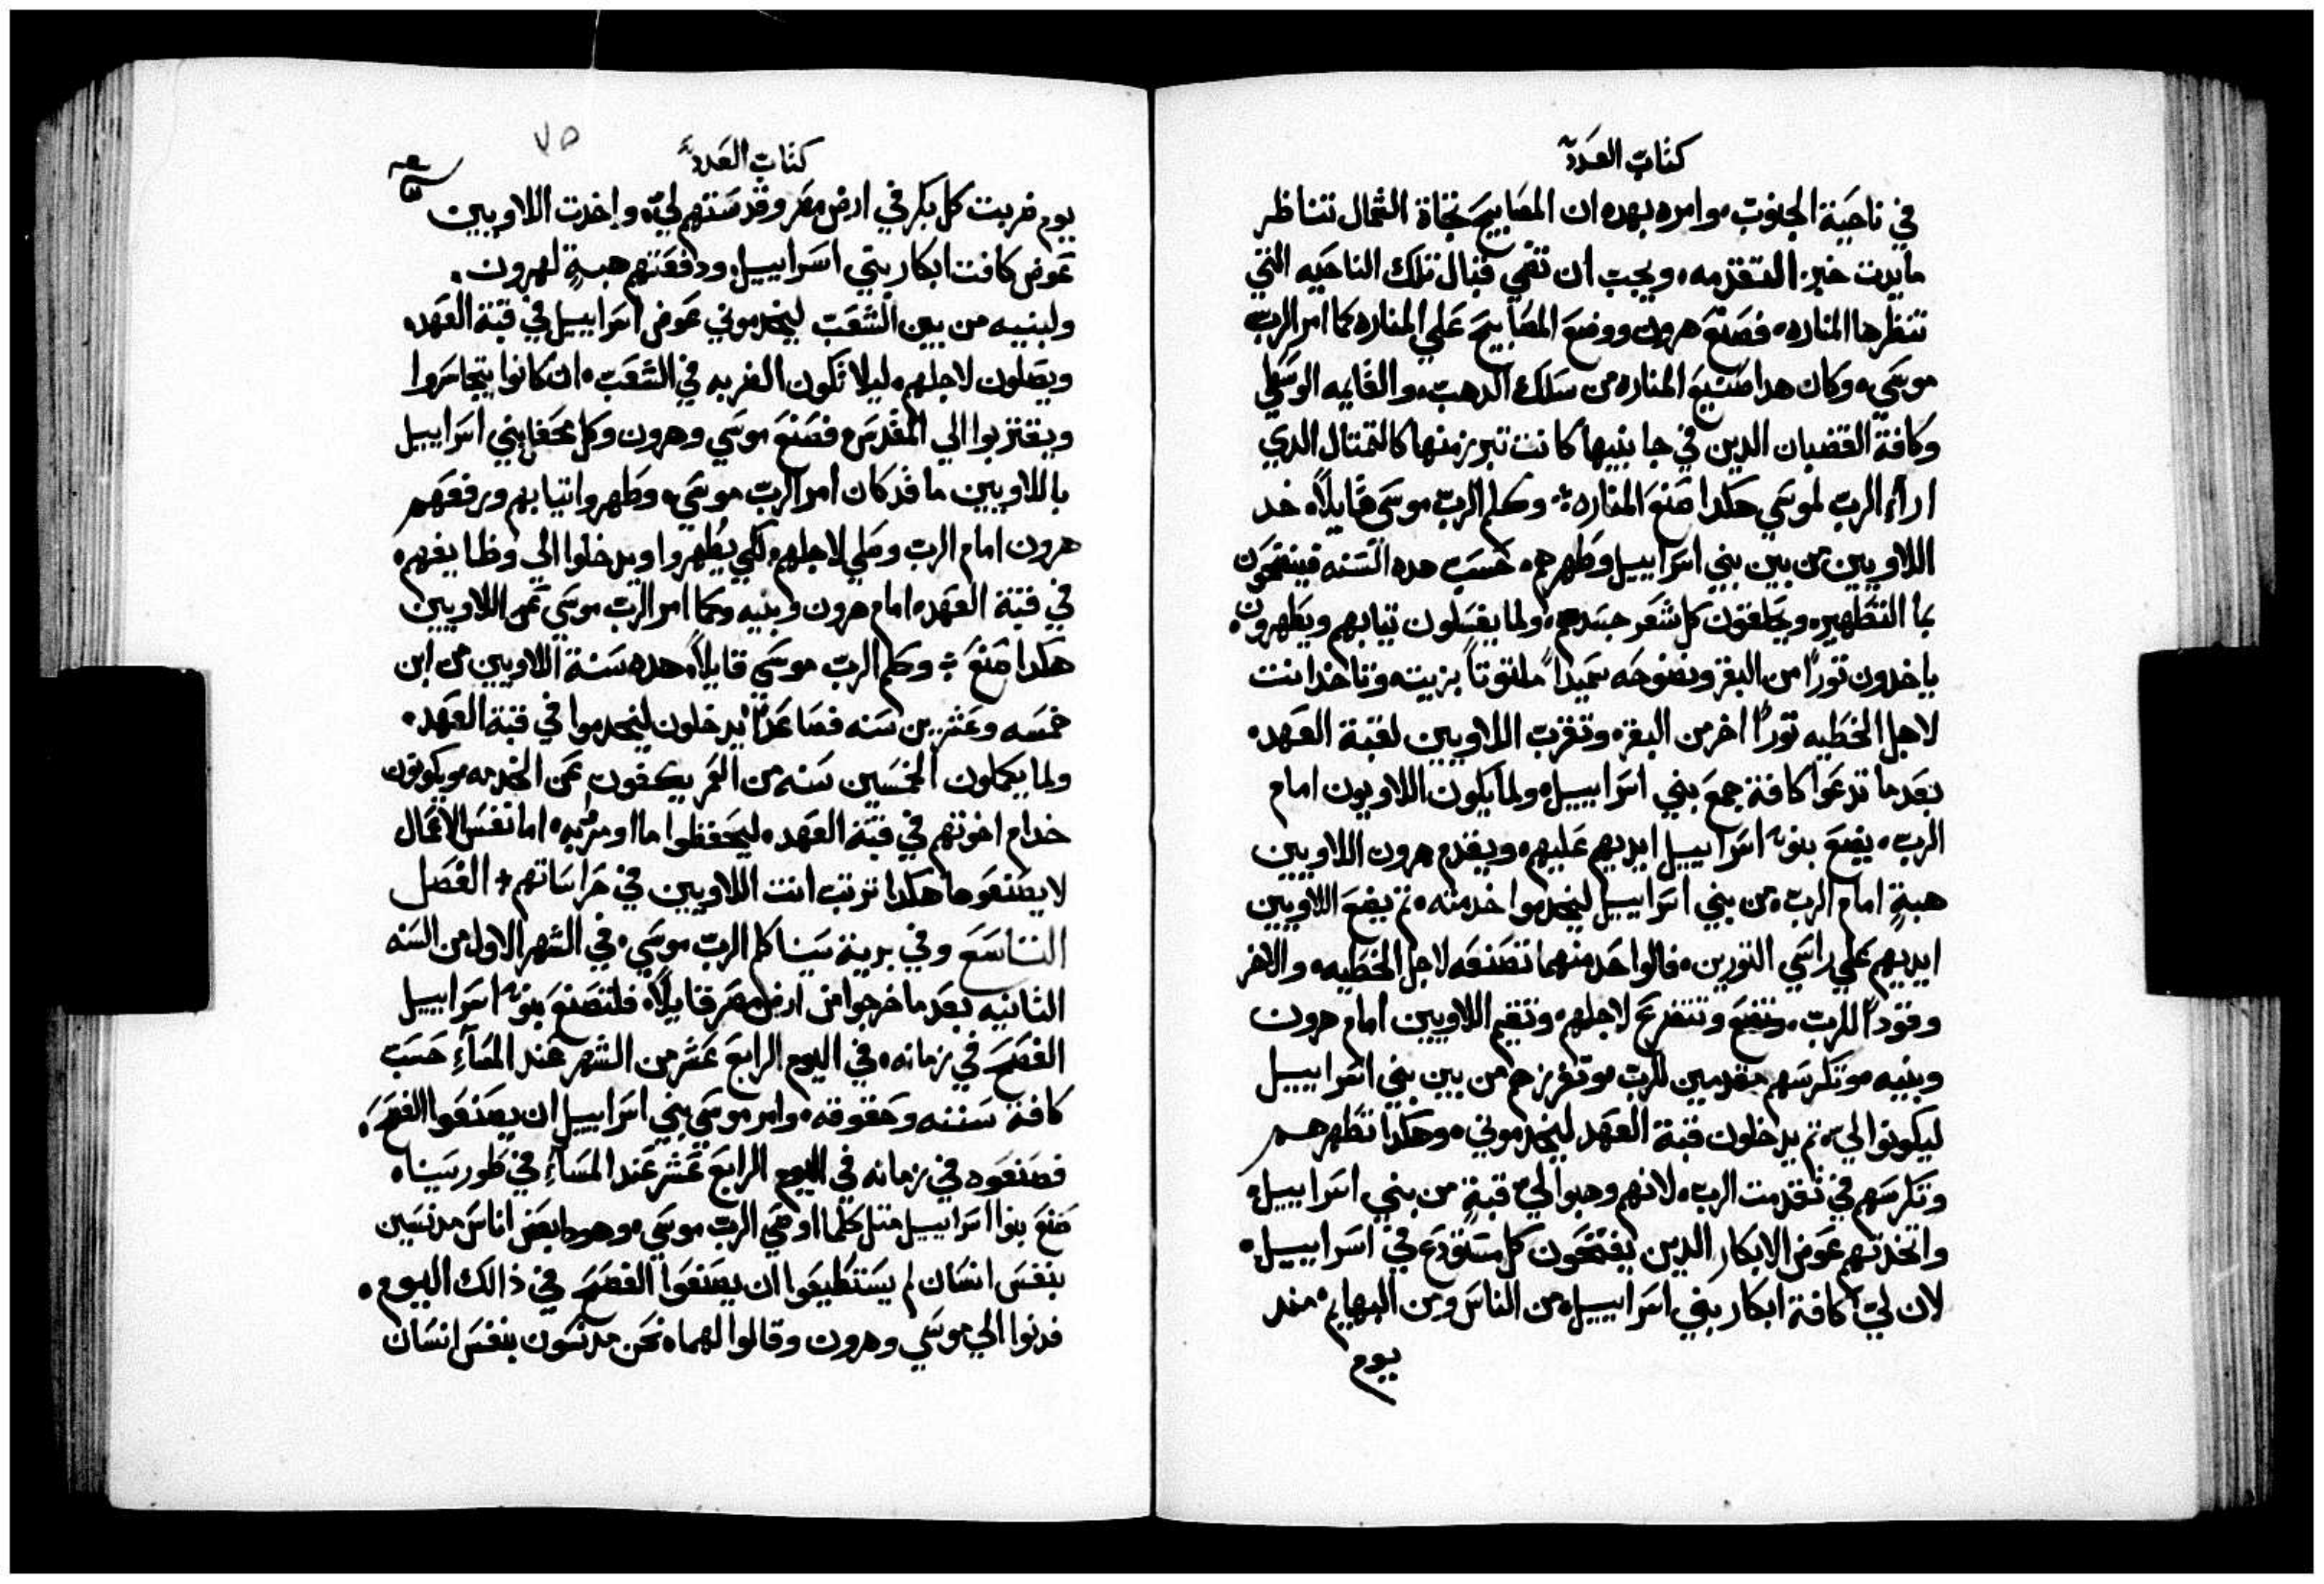 كتاب العدد
في ناحية الجنوب وامره بهده ان المصابيح تجاة الشمال تناظر
مايدت خبز التقدمه، ويجب ان تضي قبال تلك الناحيه التي
تنظرها المناره، فصنع هرون ووضع المصابيح علي المناره كما امر الرب
موسي، وكان هدا صنيع المناره من سلك الدهب، والقايمه الوسطي
وكافة القضبان الدين في جانبيها كانت تبرز منها كالتمتال الدي
اراه الرب لموسي هكدا صنع المناره، وكلم الرب موسي قايلاً، خد
اللاويين من بين بني اسراييل وطهرهم، حسب هده السنه فينضحون
بما التطهير، ويحلقون كل شعر جسدهم، ولما يغسلون تيابهم ويطهرون،
ياخدون توراً من البقر ونضوحه سميداً ملتوتاً بزيته وتاخد انت
لاجل الخطيه توراً اخر من البقر، وتقرب اللاويين لقبة العهد،
بعد ما تدعوا كافة جمع بني اسراييل، ولما يكون اللاويون امام
الرب، يضع بنو اسراييل ايديهم عليهم، ويقدم هرون اللاويين
هبةٍ امام الرب، من بني اسراييل ليخدموا خدمته، تم يضع اللاويين
ايديهم علي راسي التورين، فالواحد منهما تصنعه لاجل الخطيه، والاخر
وقوداً للرب، وتتضرع لاجلهم، وتقيم اللاويين امام هرون
وبنيه وتكرسهم مقدمين للرب وتفرزهم من بين بني اسراييل
ليكونوا لي، تم يدخلون قبة العهد ليخدموني، وهكدا تطهرهم
وتكرسهم في تقدمت الرب، لانهم وهبوا لي هبةٍ من بني اسراييل،
واتخدتهم عوض الابكار الدين يفتحون كل مستودع في اسراييل،
لان لي كافة ابكار بني اسراييل، من الناس ومن البهايم، مند
يوم
كتاب العدد
٧٥
يوم ضربت كل بكر في ارض مصر وقدستهم لي، واخدت اللاويين
عوض كافت ابكار بني اسراييل، ودفعتهم هبةٍ لهرون،
ولبنيه من بين الشعب ليخدموني عوض اسراييل في قبة العهد،
ويصلون لاجلهم، ليلا تكون الضربه في الشعب، ان كانوا يتجاسروا
ويقتربوا الي المقدس، فصنع موسي وهرون وكل محفل بني اسراييل
باللاويين ما قد كان امر الرب موسي، وطهروا تيابهم ورفعهم
هرون امام الرب وصلي لاجلهم، لكي يطهروا ويدخلوا الي وظايفهم،
في قبة العهد، امام هرون وبنيه وكما امر الرب موسي عن اللاويين
هكدا صنع، وكلم الرب موسي قايلاً، هده سنة اللاويين من ابن
خمسه وعشرين سنه فصاعداً يدخلون ليخدموا في قبة العهد،
ولما يكملون الخمسين سنه من العمر يكفون عن الخدمه، ويكونون
خدام اخوتهم في قبة العهد، ليحفظوا ما اومر به، اما نفس الاعمال
لا يصنعوها هكدا ترتب انت اللاويين في حراساتهم، الفصل
التاسع وفي برية سينا كلم الرب موسي، في الشهر الاول من السنه
التانيه بعد ما خرجوا من ارض مصر قايلاً، فلتصنع بنو اسراييل
الفصح في زمانه، في اليوم الرابع عشر من الشهر عند المساء حسب
كافة سننه وحقوقه، وامر موسي بني اسراييل ان يصنعوا الفصح،
فصنعوه في زمانه في اليوم الرابع عشر عند المساء في طور سينا،
صنع بنوا اسراييل متل كلما اوصي الرب موسي، وهودا بعض اناس مدنسين
بنفس انسان لم يستطيعوا ان يصنعوا الفصح في ذالك اليوم،
فدنوا الي موسي وهرون وقالوا لهما، نحن مدنسون بنفس انسان